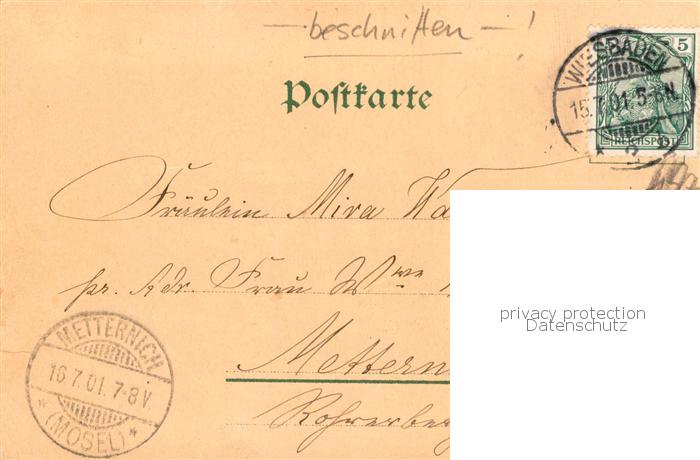 — beschnitten — !
5
REICHSPOST
WIESBADEN
15.7.01.5-6N.
* 2
Postkarte
Fräulein Mira Wa
pr. Adr. Frau Wwe
Metterni
Rohrerberg
METTERNICH
16.7.01.7-8V.
* (MOSEL) *
privacy protection
Datenschutz